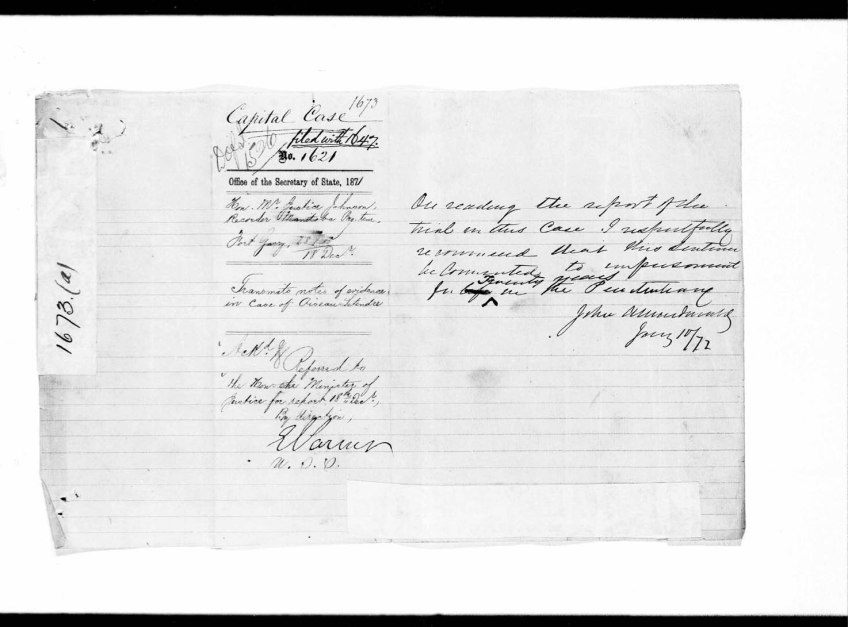 1673
Capital Case
filed with 1647.
No. 1621
Office of the Secretary of State, 1871
Hon. Mr. Justice Johnson,
Recorder Manitoba Pro. tem.
Fort Garry,
18 Decr.
Transmits notes of evidence
in case of Oiseau-
Ackd.
Referred to
the Hon. the Minister of
Justice for report 18th Decr.,
By direction,
U. S. S.
1673.(a)
On reading the report of the
trial in this case I respectfully
recommend that this sentence
be commuted to imprisonment
for Twenty years in the Penitentiary
John A Macdonald
Jany 10/72